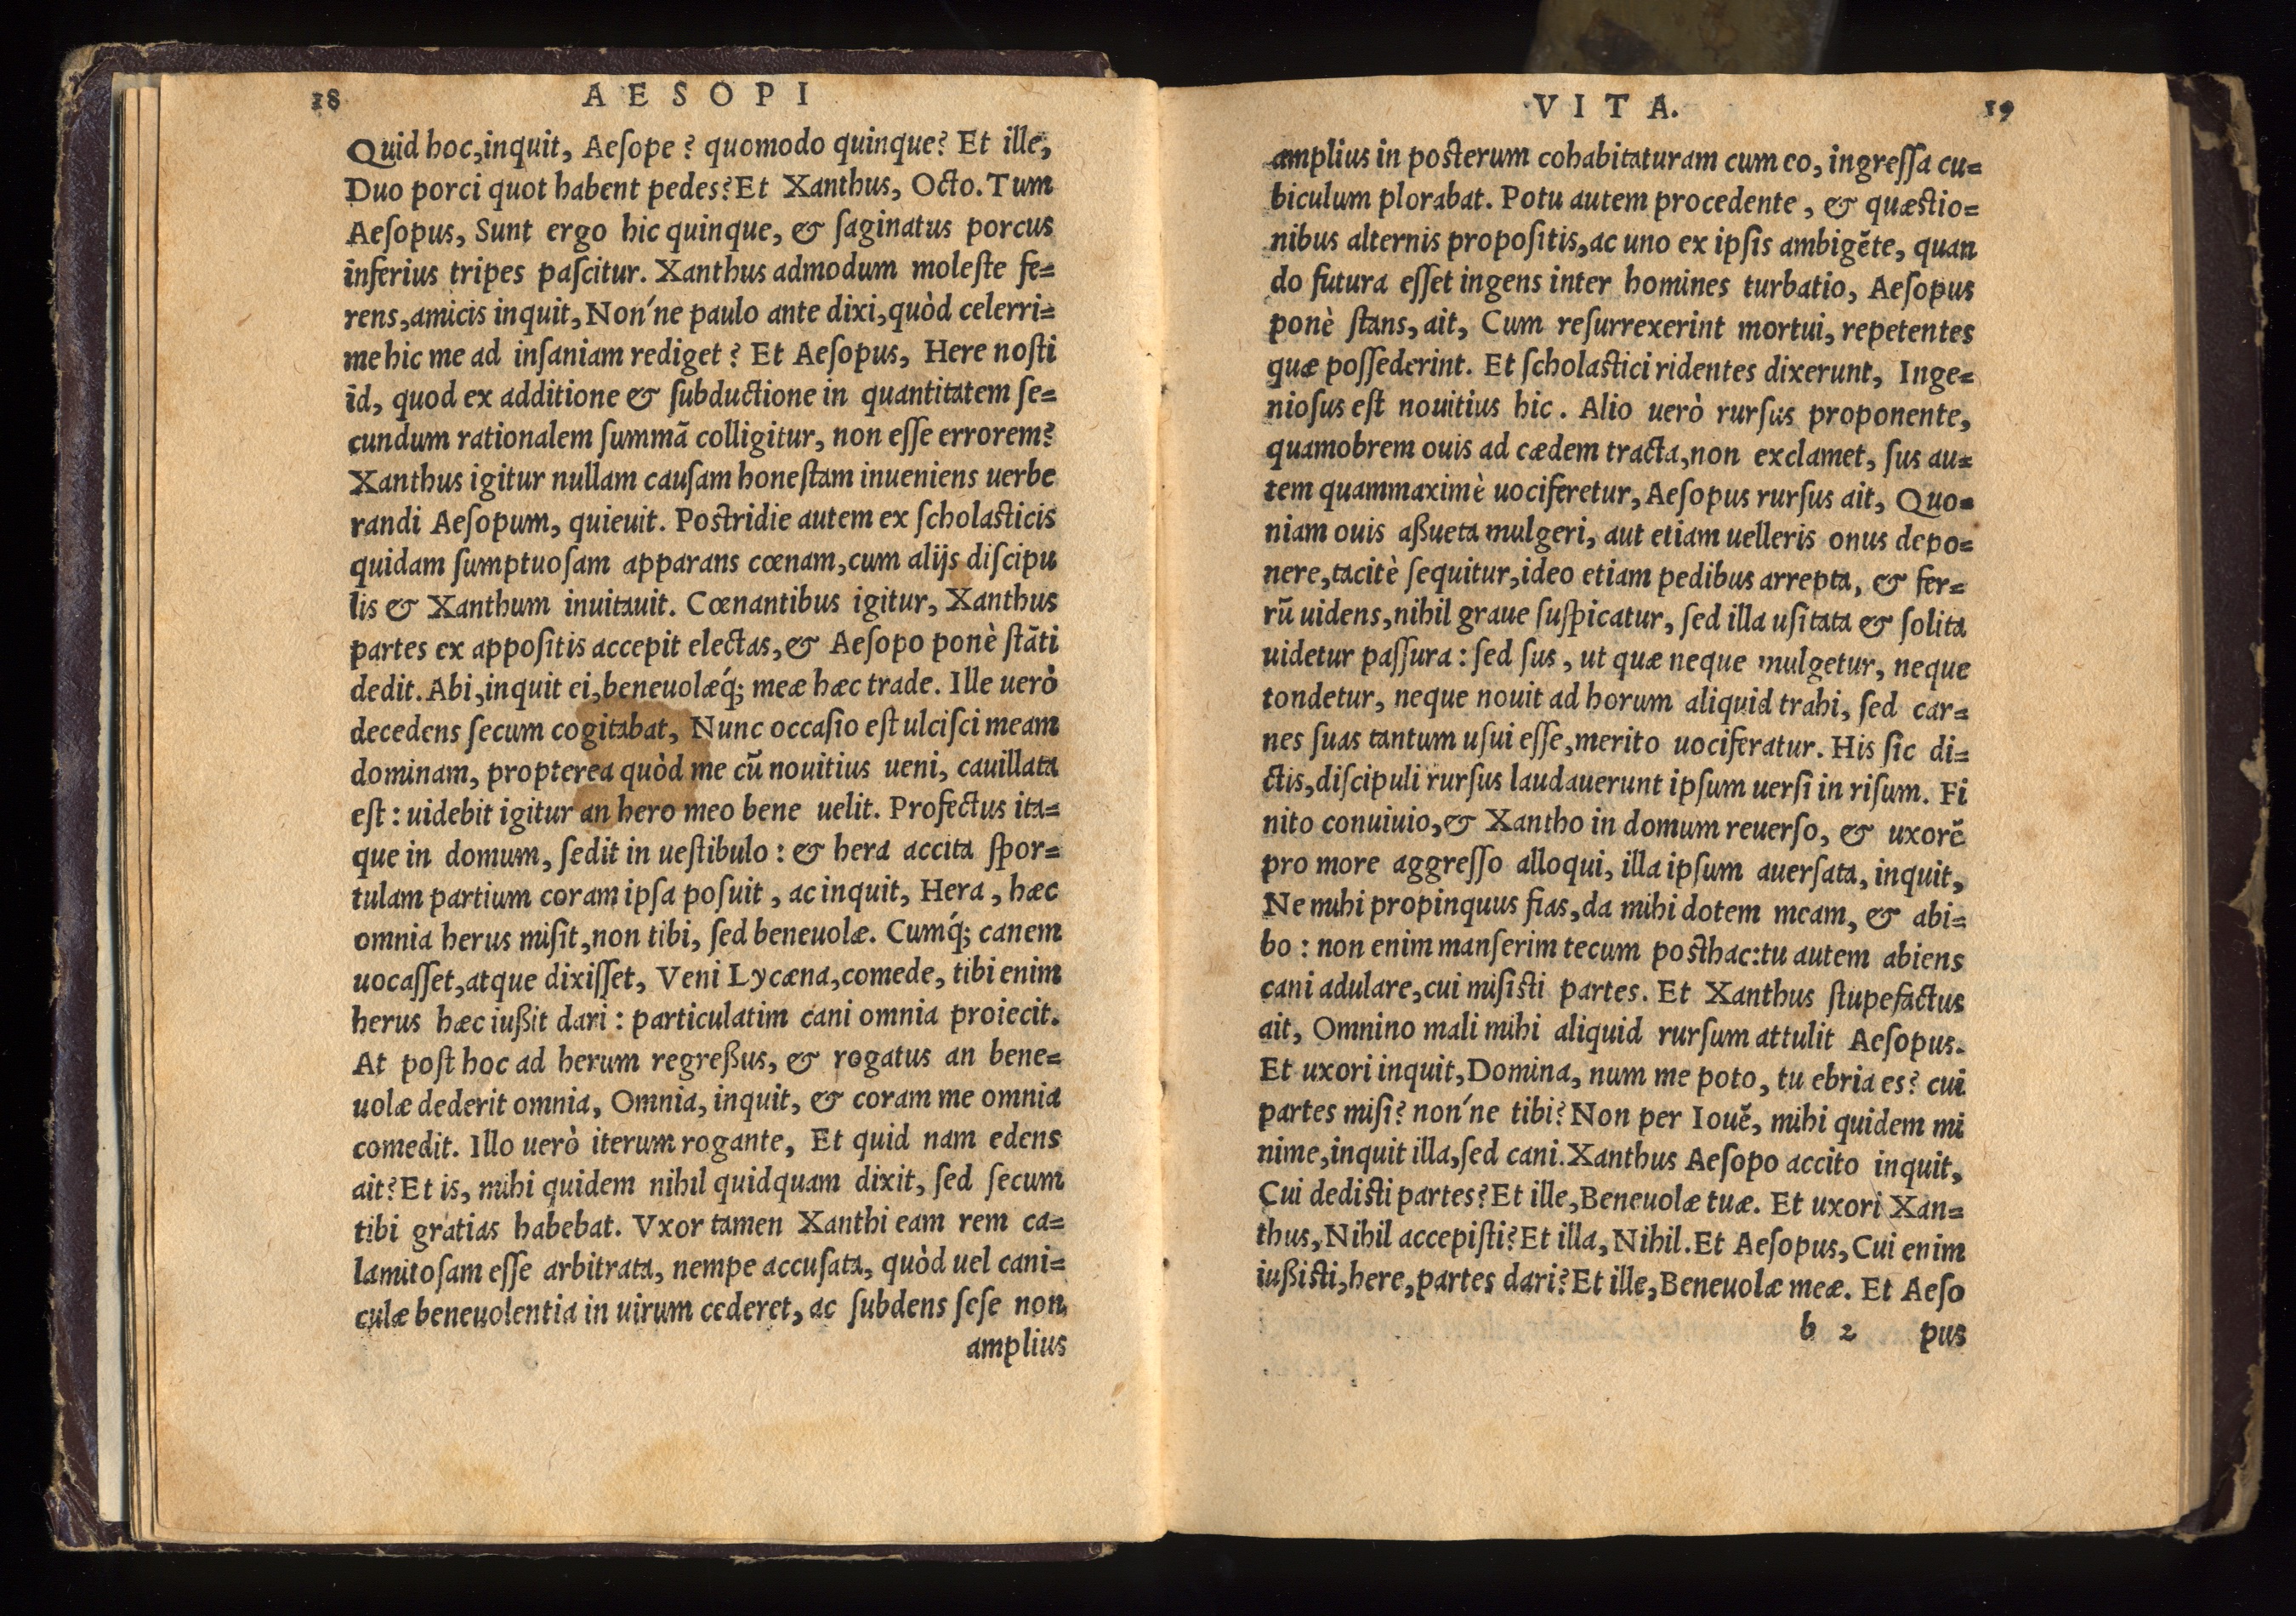 18 AESOPI
Quid hoc,inquit, Aeſope? quomodo quinque? Et ille,
Duo porci quot habent pedes? Et Xanthus, Octo. Tum
Aeſopus, Sunt ergo hic quinque, & ſaginatus porcus
inferius tripes paſcitur. Xanthus admodum moleſte fe=
rens,amicis inquit, Non'ne paulo ante dixi,quòd celerri=
me hic me ad inſaniam rediget? Et Aeſopus, Here noſti
id, quod ex additione & ſubductione in quantitatem ſe=
cundum rationalem ſummā colligitur, non eſſe errorem?
Xanthus igitur nullam cauſam honeſtam inueniens uerbe
randi Aeſopum, quieuit. Poſtridie autem ex ſcholaſticis
quidam ſumptuoſam apparans cœnam,cum alijs diſcipu
lis & Xanthum inuitauit. Cœnantibus igitur, Xanthus
partes ex appoſitis accepit electas,& Aeſopo ponè ſtāti
dedit. Abi,inquit ei,beneuolæq́; meæ hæc trade. Ille uerò
decedens ſecum cogitabat, Nunc occaſio eſt ulciſci meam
dominam, propterea quòd me cū nouitius ueni, cauillata
eſt: uidebit igitur an hero meo bene uelit. Profectus ita=
que in domum, ſedit in ueſtibulo: & hera accita ſpor=
tulam partium coram ipſa poſuit, ac inquit, Hera, hæc
omnia herus miſit,non tibi, ſed beneuolæ. Cumq́; canem
uocaſſet,atque dixiſſet, Veni Lycæna,comede, tibi enim
herus hæc iußit dari: particulatim cani omnia proiecit.
At poſt hoc ad herum regreßus, & rogatus an bene=
uolæ dederit omnia, Omnia, inquit, & coram me omnia
comedit. Illo uerò iterum rogante, Et quid nam edens
ait? Et is, mihi quidem nihil quidquam dixit, ſed ſecum
tibi gratias habebat. Vxor tamen Xanthi eam rem ca=
lamitoſam eſſe arbitrata, nempe accuſata, quòd uel cani=
culæ beneuolentia in uirum cederet, ac ſubdens ſeſe non
amplius
VITA. 19
amplius in poſterum cohabitaturam cum eo, ingreſſa cu=
biculum plorabat. Potu autem procedente, & quæſtio=
nibus alternis propoſitis,ac uno ex ipſis ambigēte, quan
do futura eſſet ingens inter homines turbatio, Aeſopus
ponè ſtans, ait, Cum reſurrexerint mortui, repetentes
quæ poſſederint. Et ſcholaſtici ridentes dixerunt, Inge=
nioſus eſt nouitius hic. Alio uerò rurſus proponente,
quamobrem ouis ad cædem tracta,non exclamet, ſus au=
tem quammaximè uociferetur, Aeſopus rurſus ait, Quo=
niam ouis aßueta mulgeri, aut etiam uelleris onus depo=
nere,tacitè ſequitur,ideo etiam pedibus arrepta, & fer=
rū uidens,nihil graue ſuſpicatur, ſed illa uſitata & ſolita
uidetur paſſura: ſed ſus, ut quæ neque mulgetur, neque
tondetur, neque nouit ad horum aliquid trahi, ſed car=
nes ſuas tantum uſui eſſe,merito uociferatur. His ſic di=
ctis,diſcipuli rurſus laudauerunt ipſum uerſi in riſum. Fi
nito conuiuio,& Xantho in domum reuerſo, & uxorē
pro more aggreſſo alloqui, illa ipſum auerſata, inquit,
Ne mihi propinquus fias,da mihi dotem meam, & abi=
bo: non enim manſerim tecum poſthac:tu autem abiens
cani adulare,cui miſiſti partes. Et Xanthus ſtupefactus
ait, Omnino mali mihi aliquid rurſum attulit Aeſopus.
Et uxori inquit, Domina, num me poto, tu ebria es? cui
partes miſi? non'ne tibi? Non per Iouē, mihi quidem mi
nime,inquit illa,ſed cani. Xanthus Aeſopo accito inquit,
Cui dediſti partes? Et ille, Beneuolæ tuæ. Et uxori Xan=
thus, Nihil accepiſti? Et illa, Nihil. Et Aeſopus, Cui enim
iußiſti,here,partes dari? Et ille, Beneuolæ meæ. Et Aeſo
b 2 pus